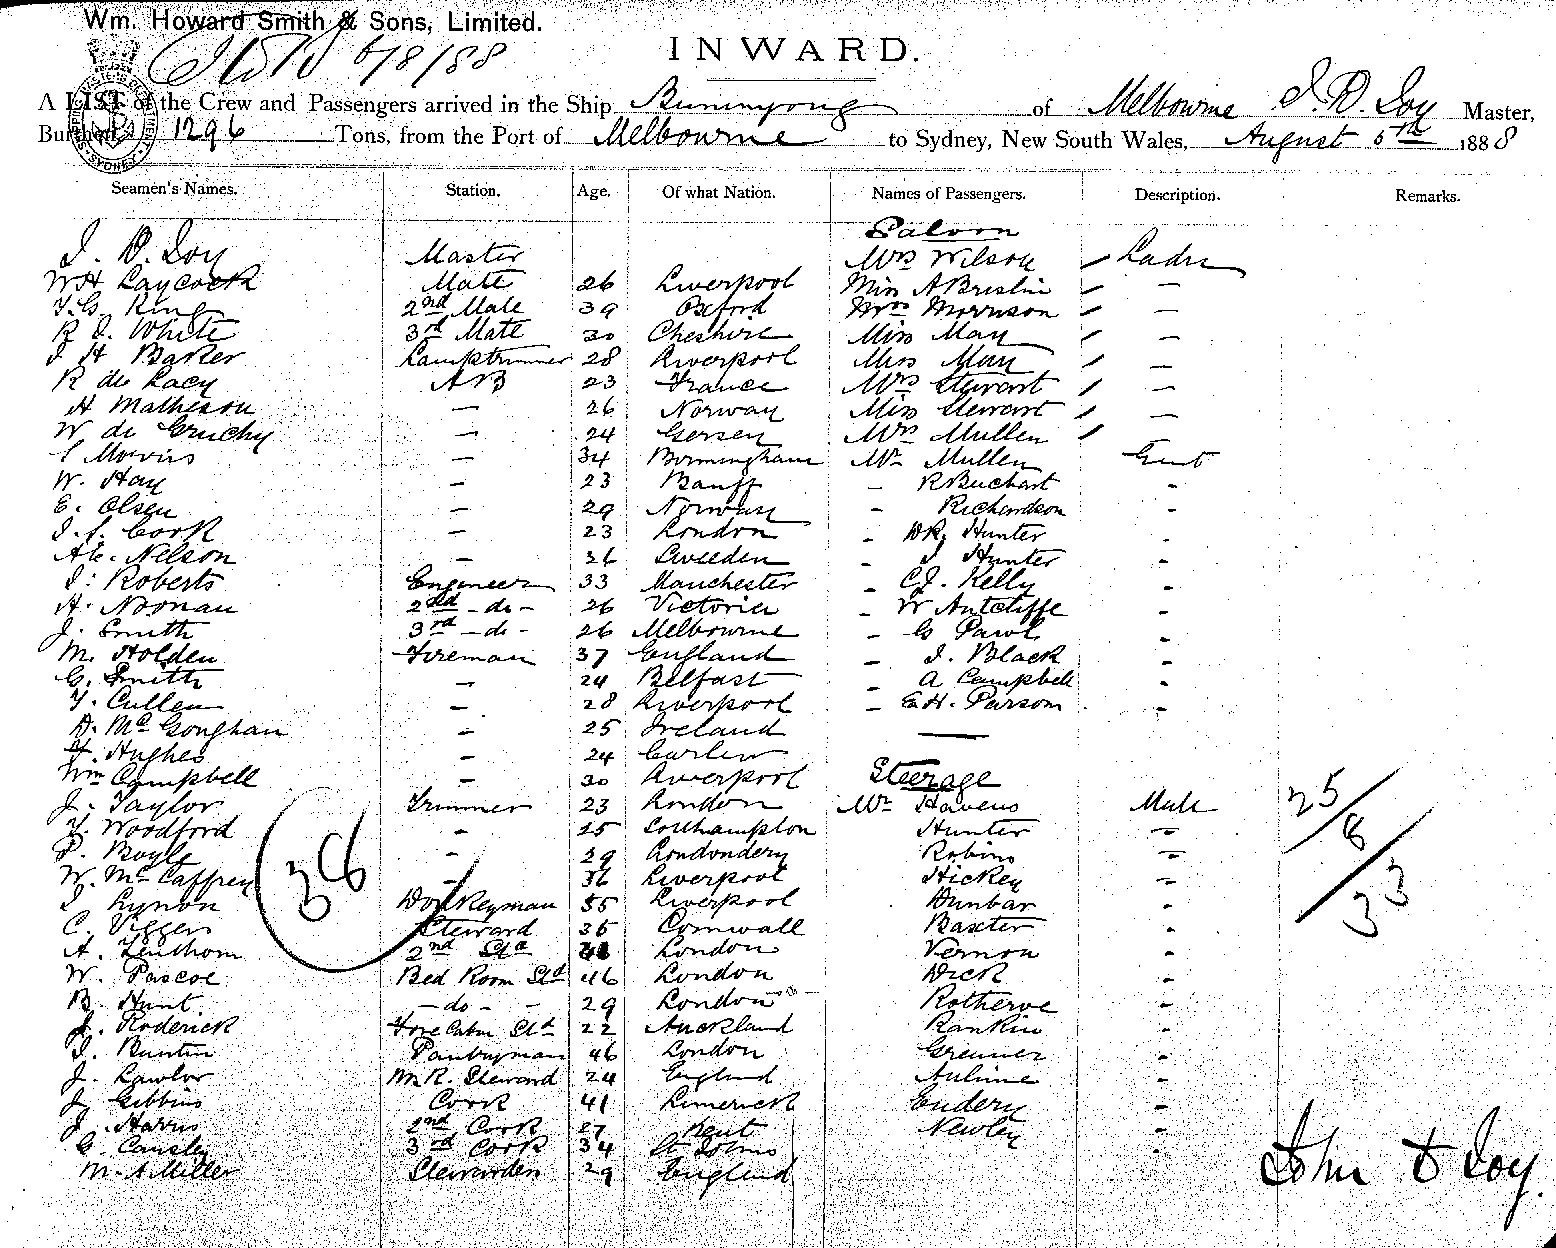 Wm. Howard Smith & Sons, Limited.
6/8/88
INWARD.
A LIST of the Crew and Passengers arrived in the Ship Buninyong of Melbourne J. D. Joy Master,
Burthen 1296 Tons, from the Port of Melbourne to Sydney, New South Wales, August 5th 1888
Seamen's Names. Station. Age. Of what Nation. Names of Passengers. Description. Remarks.
Saloon
J. D. Joy Master Mrs Wilson Ladies
WH Laycock Mate 26 Liverpool Miss A Breslin -
T. G. King 2nd Mate 39 Oxford Mrs Morrison -
R J. White 3rd Mate 30 Cheshire Miss May -
J H Barker Lamptrimmer 28 Liverpool Miss May -
R de Lacy AB 23 France Mrs Stewart -
H Matheson - 26 Norway Miss Stewart -
W de Gruchy - 24 Gersey Mrs Mullen
Morris - 34 Birmingham Mr Mullen Gent
W. Hay - 23 Banff - R Buchart -
E. Olsen - 29 Norway - Richardson -
J. S. Cork - 23 London - DR. Hunter -
Nelson - 26 Sweeden - J Hunter -
J. Roberts Engineer 33 Manchester - CJ. Kelly -
H. Noonan 2nd - do - 26 Victoria - W Antcliffe -
J. Smith 3rd - do - 26 Melbourne - G Pawl -
M. Holden Fireman 37 England - J. Black -
G. Smith - 24 Belfast - A Campbell -
T. Cullen - 28 Liverpool - E.H. Parsom -
D. Mc Goughan - 25 Ireland
Hughes - 24 Carlew
Wm Campbell - 30 Liverpool Steerage
J. Taylor Trimmer 23 London Mr Havens Male
Woodford - 25 Southampton Hunter -
P. Boyle - 29 Londondery Robins -
W. Mc Caffrey - 36 Liverpool Hickey -
J Lynon Donkeyman 55 Liverpool Dunbar -
C. Viggers Steward 36 Cornwall Baxter -
A. Lenthorn 2nd Std London Vernon -
W. Pascoe Bed Room Std 46 London Dick -
B. Hunt - do - - 29 London Rotherve -
J. Roderick Fore Cabin Std 22 Auckland Rankin -
J. Buntin Pantryman 46 London Greener -
J. Lawlor M.R. Steward 24 England -
J. Gibbins Cook 41 Limerick Endery -
J. Harris 2nd Cook 27 Kent Newley -
G. Cansley 3rd Cook 34 St Johns -
M. A Miller Stewardess 29 England
36
25
8
33
John D Joy.